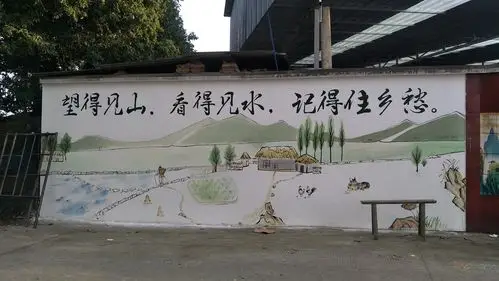 望得见山，看得见水，记得住乡愁。